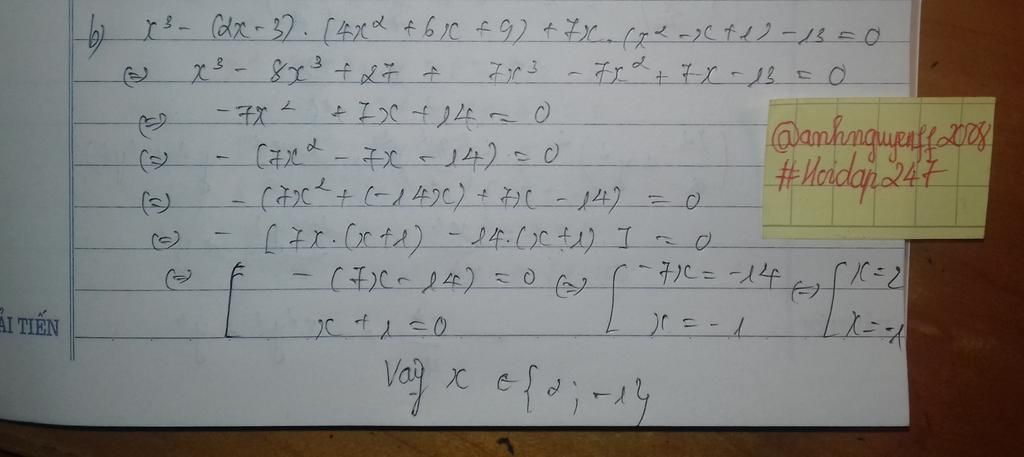 b) x³ - (2x - 3) . (4x² + 6x + 9) + 7x . (x² - x + 1) - 13 = 0
(=) x³ - 8x³ + 27 + 7x³ - 7x² + 7x - 13 = 0
(=) -7x² + 7x + 14 = 0
(=) - (7x² - 7x - 14) = 0
(=) - (7x² + (-14x) + 7x - 14) = 0
(=) - [ 7x . (x + 1) - 14 . (x + 1) ] = 0
(=) [ - (7x - 14) = 0 (=) [ -7x = -14 (=) [ x = 2
x + 1 = 0 x = -1 x = -1
Vậy x ∈ { 2 ; -1}
@anhnguyenff2008
#Hoidap247
ẢI TIẾN